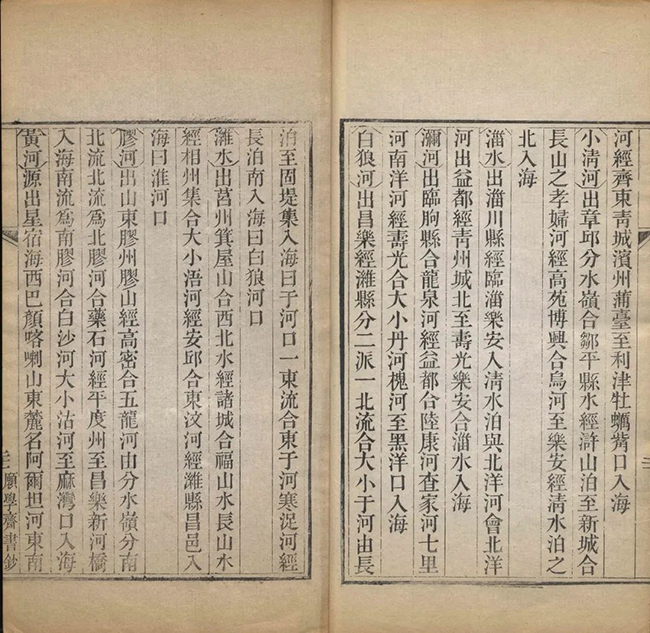 河經齊東青城濱州蒲臺至利津牡蠣觜口入海
小清河出章邱分水嶺合鄒平縣水經滸山泊至新城合
長山之孝婦河經高苑博興合烏河至樂安經清水泊之
北入海
淄水出淄川縣經臨淄樂安入清水泊與北洋河會北洋
河出益都經青州城北至壽光樂安合淄水入海
瀰河出臨朐縣合龍泉河經益都合陸康河查家河七里
河南洋河經壽光合大小丹河槐河至黑洋口入海
白狼河出昌樂經濰縣分二派一北流合大小于河由長
泊至固堤集入海曰于河口一東流合東于河寒浞河經
長泊南入海曰白狼河口
濰水出莒州箕屋山合西北水經諸城合福山水長山水
經相州集合大小浯河經安邱合東汶河經濰縣昌邑入
海曰淮河口
膠河出山東膠州膠山經高密合五龍河由分水嶺分南
北流北流爲北膠河合藥石河經平度州至昌樂新河橋
入海南流爲南膠河合白沙河大小沽河至麻灣口入海
黃河源出星宿海西巴顏喀喇山東麓名阿爾坦河東南
三 願學齋書鈔